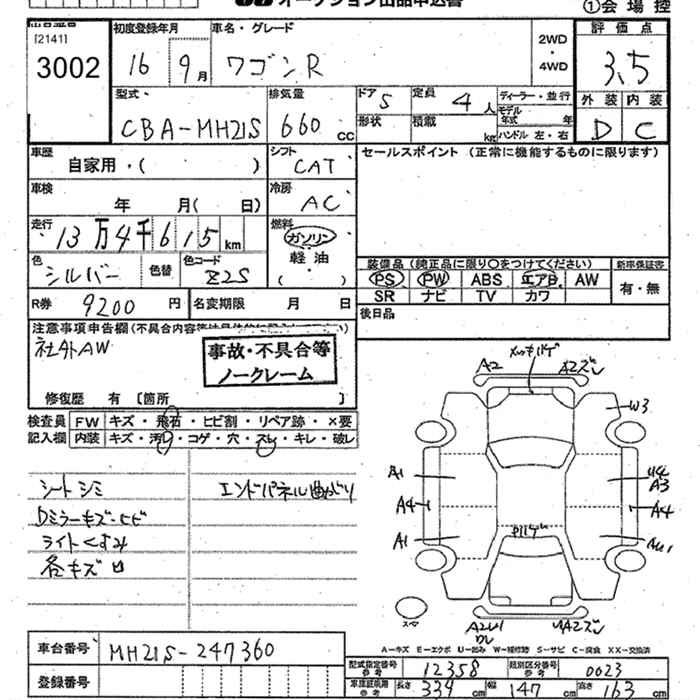 オークション出品申込書
①会場控
[2141]
3002
初度登録年月
16 9月
車名・グレード
ワゴンR
2WD
・
4WD
評価点
3.5
外装 内装
D C
型式
CBA-MH21S
排気量
660 cc
ドア 5
定員 4人
形状
積載 kg
ディーラー・並行
モデル年式 年
ハンドル 左・右
車歴
自家用・( )
シフト
CAT
セールスポイント (正常に機能するものに限ります)
車検
年 月( 日)
冷房
AC
走行
13万4千615km
燃料
ガソリン
軽油
( )
色
シルバー
色替
色コード
Z2S
装備品 (純正品に限り○をつけてください)
新車保証書
PS PW ABS エアB AW
有・無
SR ナビ TV カワ
R券 9200円
名変期限 月 日
後日品
注意事項申告欄
社外AW
事故・不具合等
ノークレーム
修復歴 有 [箇所 ]
検査員
記入欄
FW キズ・飛石・ヒビ割・リペア跡・×要
内装 キズ・汚レ・コゲ・穴・スレ・キレ・破レ
シートシミ
エンドパネル曲がり
Dミラーキズ・ヒビ
ライトくすみ
各キズ凹
A2
A2ズレ
W3
A1
A3
A4
A4
A1
スペア
A-キズ E-エクボ U-凹み W-補修跡 S-サビ C-腐食 XX-交換済
車台番号
MH21S-247360
登録番号
型式指定番号 参考
12358
類別区分番号 参考
0023
車庫証明用 参考
長さ 339 cm
幅 147 cm
高さ 163 cm